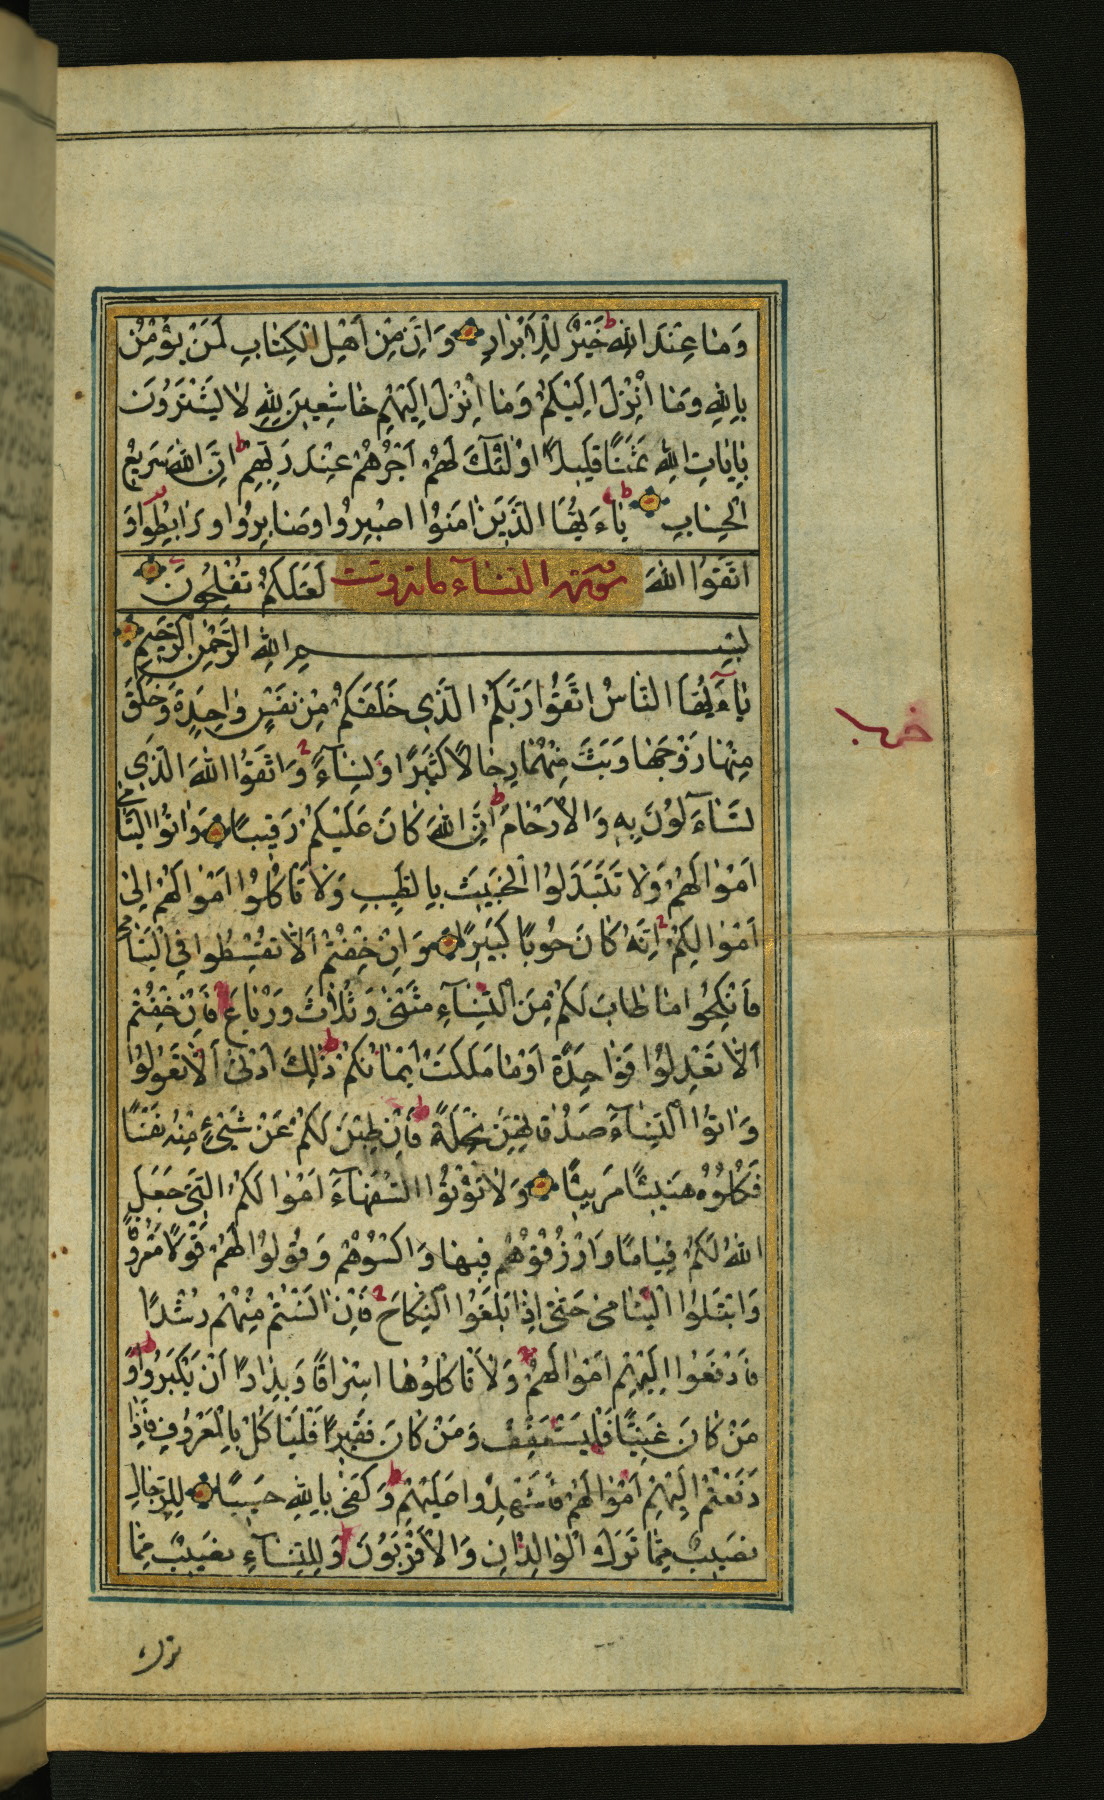 وَمٰا عِنْدَ اللهِ خَيْرٌ لِلْاَبْرٰارِ وَاِنَّ مِنْ اَهْلِ الْكِتٰابِ لَمَنْ يُؤْمِنُ
بِاللهِ وَمٰا اُنْزِلَ اِلَيْكُمْ وَمٰا اُنْزِلَ اِلَيْهِمْ خٰاشِعِينَ لِلّٰهِ لٰا يَشْتَرُونَ
بِاٰيٰاتِ اللهِ ثَمَنًا قَلِيلًا اُولٰئِكَ لَهُمْ اَجْرُهُمْ عِنْدَ رَبِّهِمْ اِنَّ اللهَ سَرِيعُ
الْحِسٰابِ يٰاءَيُّهَا الَّذِينَ اٰمَنُوا اصْبِرُوا وَصٰابِرُوا وَرٰابِطُوا وَ
اتَّقُوا اللهَ لَعَلَّكُمْ تُفْلِحُونَ
سورة النسآء
بِسْمِ اللهِ الرَّحْمٰنِ الرَّحِيمِ
يٰاءَيُّهَا النّٰاسُ اتَّقُوا رَبَّكُمُ الَّذِي خَلَقَكُمْ مِنْ نَفْسٍ وٰاحِدَةٍ وَخَلَقَ
مِنْهٰا زَوْجَهٰا وَبَثَّ مِنْهُمٰا رِجٰالًا كَثِيرًا وَنِسٰآءً وَاتَّقُوا اللهَ الَّذِي
تَسٰآءَلُونَ بِهِ وَالْاَرْحٰامَ اِنَّ اللهَ كٰانَ عَلَيْكُمْ رَقِيبًا وَاٰتُوا الْيَتٰامٰى
اَمْوٰالَهُمْ وَلٰا تَتَبَدَّلُوا الْخَبِيثَ بِالطَّيِّبِ وَلٰا تَاْكُلُوا اَمْوٰالَهُمْ اِلىٰ
اَمْوٰالِكُمْ اِنَّهُ كٰانَ حُوبًا كَبِيرًا وَاِنْ خِفْتُمْ اَلّٰا تُقْسِطُوا فِي الْيَتٰامٰى
فَانْكِحُوا مٰا طٰابَ لَكُمْ مِنَ النِّسٰآءِ مَثْنىٰ وَثُلٰاثَ وَرُبٰاعَ فَاِنْ خِفْتُمْ
اَلّٰا تَعْدِلُوا فَوٰاحِدَةً اَوْ مٰا مَلَكَتْ اَيْمٰانُكُمْ ذٰلِكَ اَدْنىٰ اَلّٰا تَعُولُوا
وَاٰتُوا النِّسٰآءَ صَدُقٰاتِهِنَّ نِحْلَةً فَاِنْ طِبْنَ لَكُمْ عَنْ شَيْءٍ مِنْهُ نَفْسًا
فَكُلُوهُ هَنِيئًا مَرِيئًا وَلٰا تُؤْتُوا السُّفَهٰآءَ اَمْوٰالَكُمُ الَّتِي جَعَلَ
اللهُ لَكُمْ قِيٰامًا وَارْزُقُوهُمْ فِيهٰا وَاكْسُوهُمْ وَقُولُوا لَهُمْ قَوْلًا مَعْرُوفًا
وَابْتَلُوا الْيَتٰامٰى حَتّىٰ اِذٰا بَلَغُوا النِّكٰاحَ فَاِنْ اٰنَسْتُمْ مِنْهُمْ رُشْدًا
فَادْفَعُوا اِلَيْهِمْ اَمْوٰالَهُمْ وَلٰا تَاْكُلُوهٰا اِسْرٰافًا وَبِدٰارًا اَنْ يَكْبَرُوا وَ
مَنْ كٰانَ غَنِيًّا فَلْيَسْتَعْفِفْ وَمَنْ كٰانَ فَقِيرًا فَلْيَاْكُلْ بِالْمَعْرُوفِ فَاِذٰا
دَفَعْتُمْ اِلَيْهِمْ اَمْوٰالَهُمْ فَاَشْهِدُوا عَلَيْهِمْ وَكَفىٰ بِاللهِ حَسِيبًا لِلرِّجٰالِ
نَصِيبٌ مِمّٰا تَرَكَ الْوٰالِدٰانِ وَالْاَقْرَبُونَ وَلِلنِّسٰآءِ نَصِيبٌ مِمّٰا
ترك